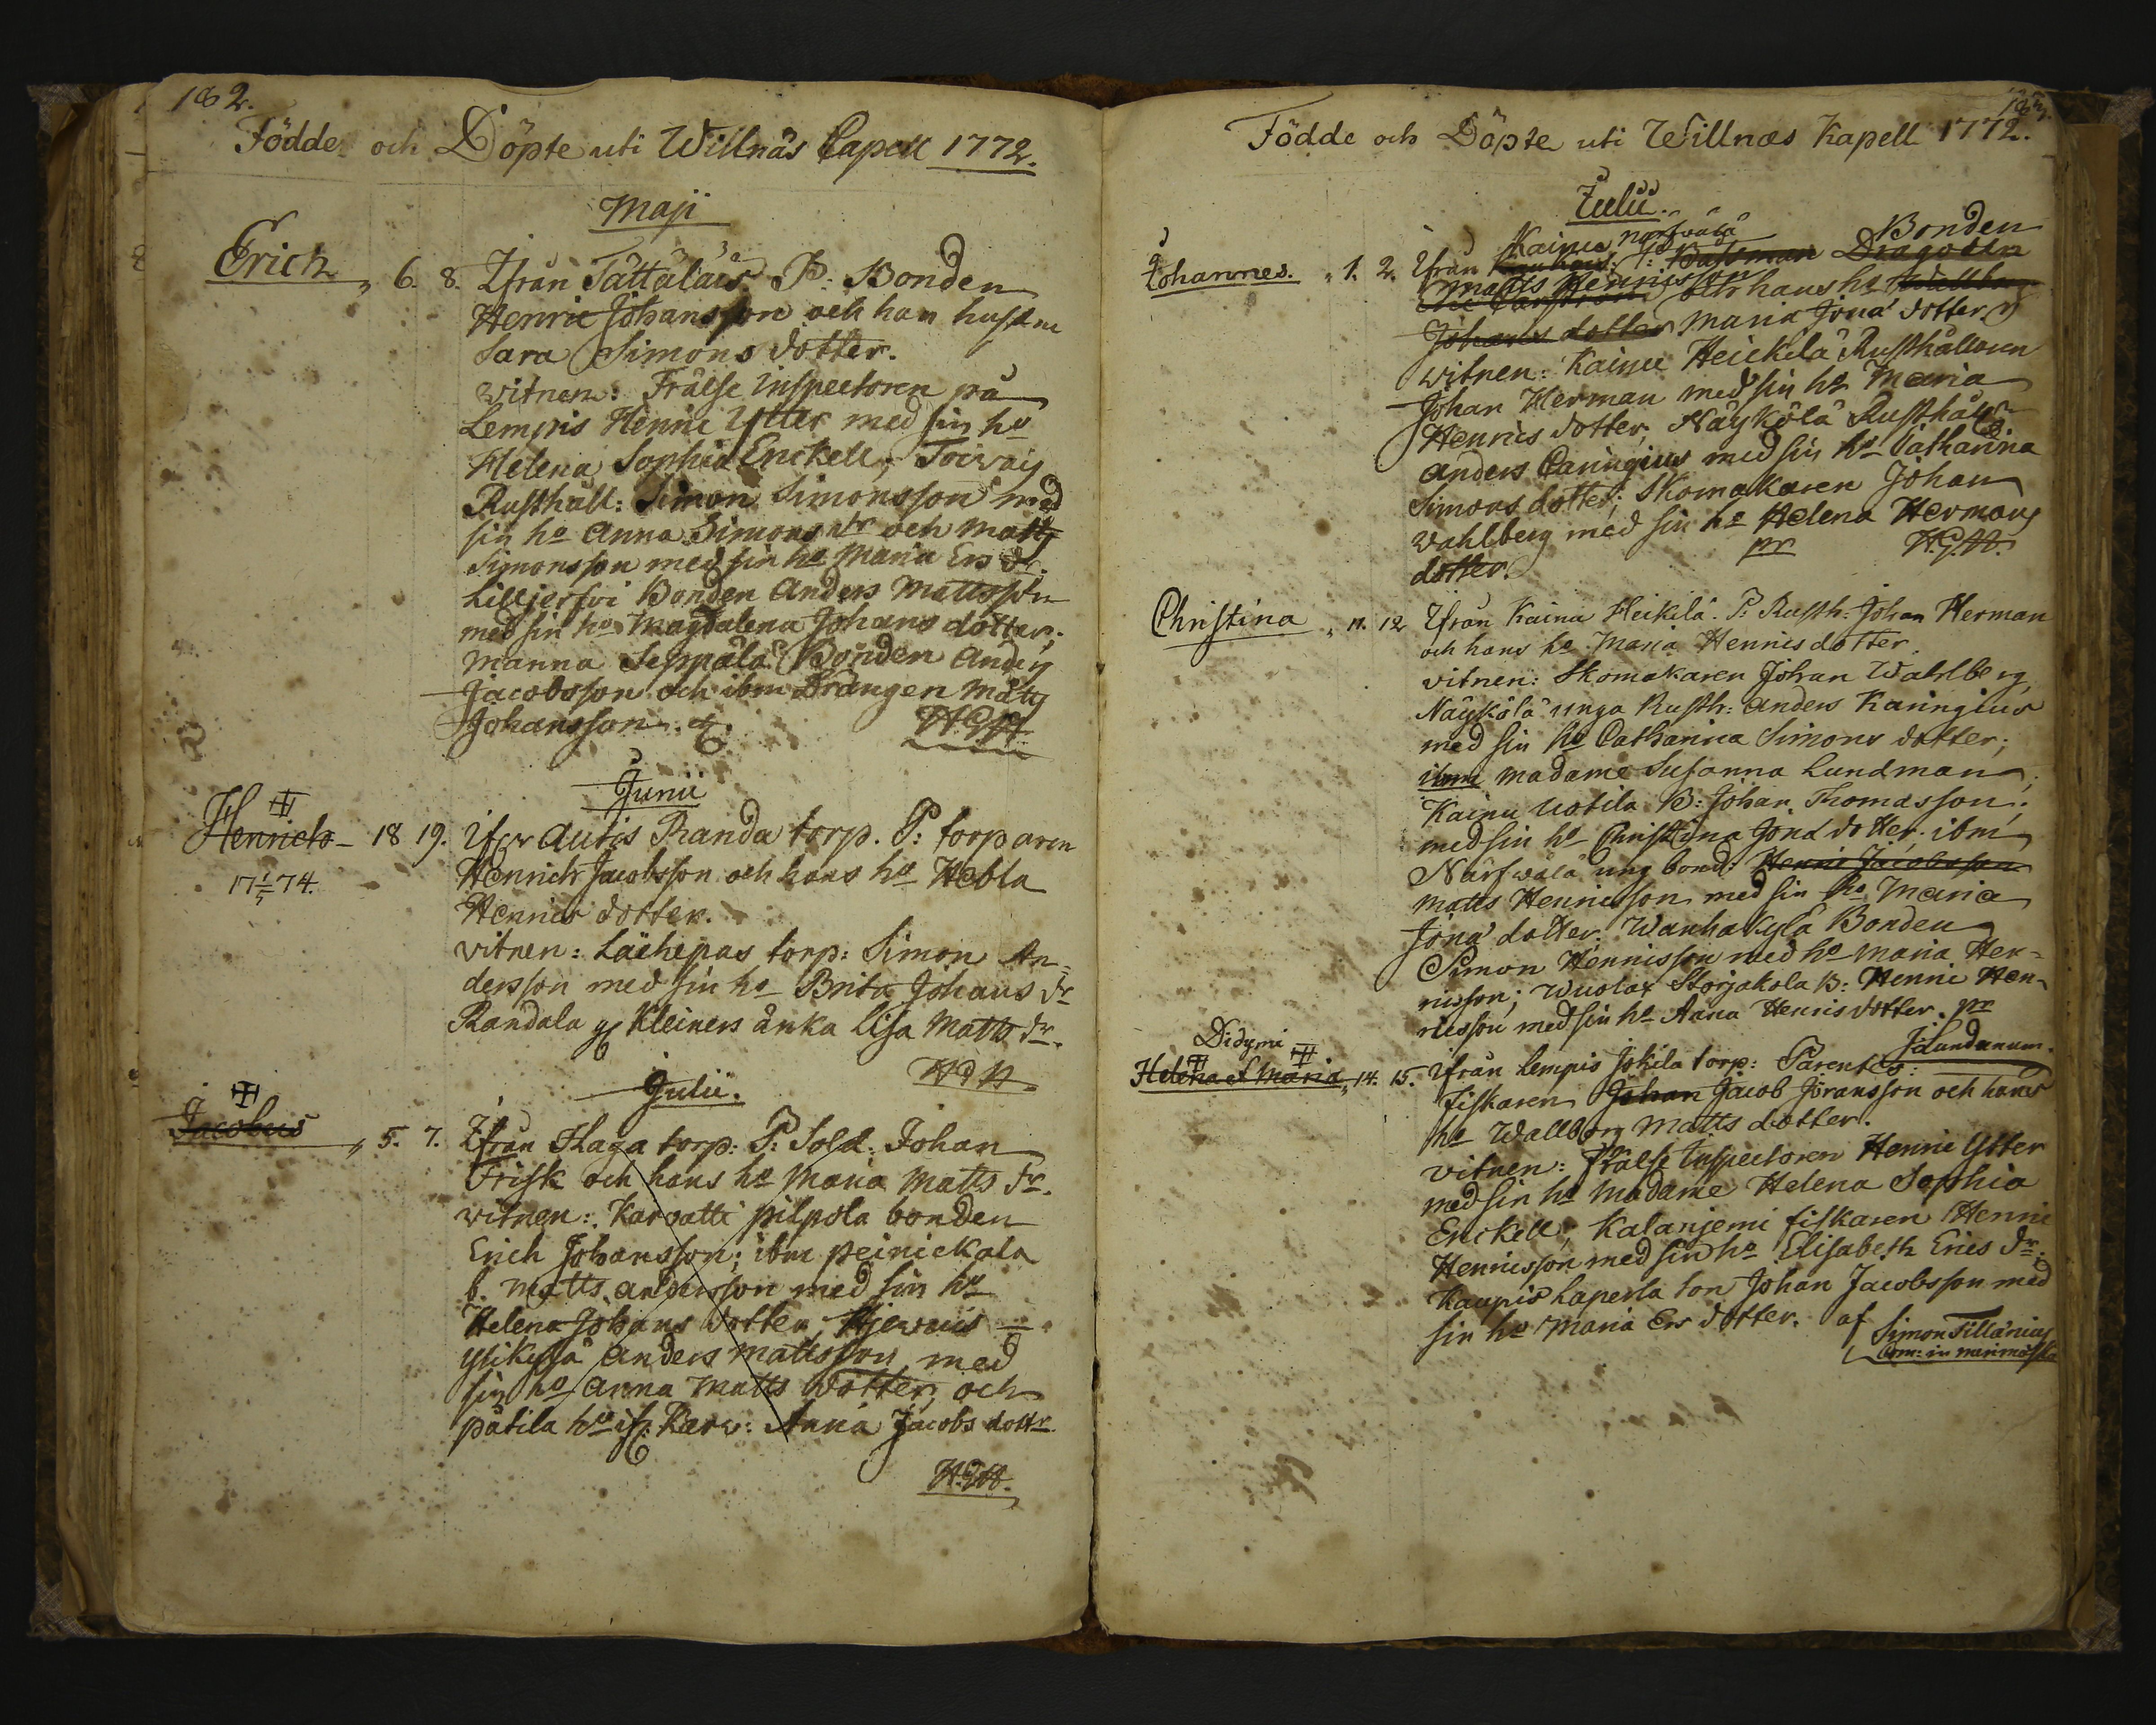 182.
Födde och Döpte uti Willnäs Capell 1772.
Maji
Erich „ 6. 8. Ifrån Tättäläis P: Bonden
Henric Johansson och han hustru
Sara Simons dotter.
witnen: Frälse Inspectoren på
Lempis Henric Ytter med sin ho
Helena Sophia Enckell; Toivais
Rusthåll: Simon Simonsson med
sin ho Anna Simons dr och Matts
Simonsson med sin ho Maria Ers dr.
Bonden Anders Mattsson
med sin ho Magdalena Johans dotter;
Manna Seppälä Bonden Anders
Jacobsson och ibm Drängen Matts
Johansson.
Junii
Henrich – 18 19. ifr Autis Randa torp. P: torparen
17 1/5 74. Henrich Jacobsson och hans ho Hebla
Henrics dotter.
vitnen: Läehepas torp: Simon An=
dersson med sin ho Brita Johans dr
Randala Kleiners änka Lisa Matts dr.
Julii.
Jacobus „ 5. 7. Ifrån Haga torp: P: Sold: Johan
Frisk och hans ho Maria Matts dr.
witnen: Karvatti pilpola bonden
Erich Johansson; ibm peinickala
b. Matts Andersson med sin ho
Helena Johans dotter
Anders Mattsson med
sin ho Anna Matts dotter och
pätila ho Karv: Anna Jacobs dottr
183.
Födde och Döpte uti Willnæs Kapell 1772.
Julii.
Kainu Närfwälä Bonden
Johannes. „ 1. 2. Ifrån P: Bassman Dragoun
Matts Henricsson
och hans ho Wallborg
Johans dotter Maria Jona dotter
witnen: Kainu Heickilä Rusthållaren
Johan Herman med sin ho Maria
Henrics dotter, Näyköla Rusthåll
Anders Caringius med sin ho Catharina
Simons dotter; Skomakaren Johan
Wahlberg med sin ho Helena Hermans
dotter. pr
Christina „ 11. 12 Ifrån Kainu Heikilä. P: Rusth: Johan Herman
och hans ho Maria Henrics dotter.
vitnen: Skomakaren Johan Wahlberg
Näykölä unga Rusth: Anders Karingius
med sin ho Catharina Simons dotter;
ibm Madame Susanna Lundman;
Kainu Uotila B: Johan Thomasson;
med sin ho Christina Jona dotter. ibm
Närfwälä ung bond: Henric Jacobsson
Matts Henricsson med sin ho Maria
Jona dotter. Wanhakylä Bonden
Simon Henricsson med ho Maria Hen=
ricsson; Wuolax Storjakola B: Henric Hen=
ricsson med sin ho Anna Henrics dotter. pr
J. Lundanum.
Didymi
Helena et Maria „ 14. 15. Ifrån Lempis Jokila torp: Parentes:
fiskaren Johan Jacob Jöransson och hans
ho Wallborg Matts dotter.
vitnen: Frälse Inspectoren Henric Ytter
med sin ho Madame Helena Sophia
Enckell; Kalanjemi fiskaren Henric
Henricsson med sin ho Elisabeth Erics dr.
Kaupis Laperla tor Johan Jacobsson med
sin ho Maria Ers dotter. af Simon Tillänius